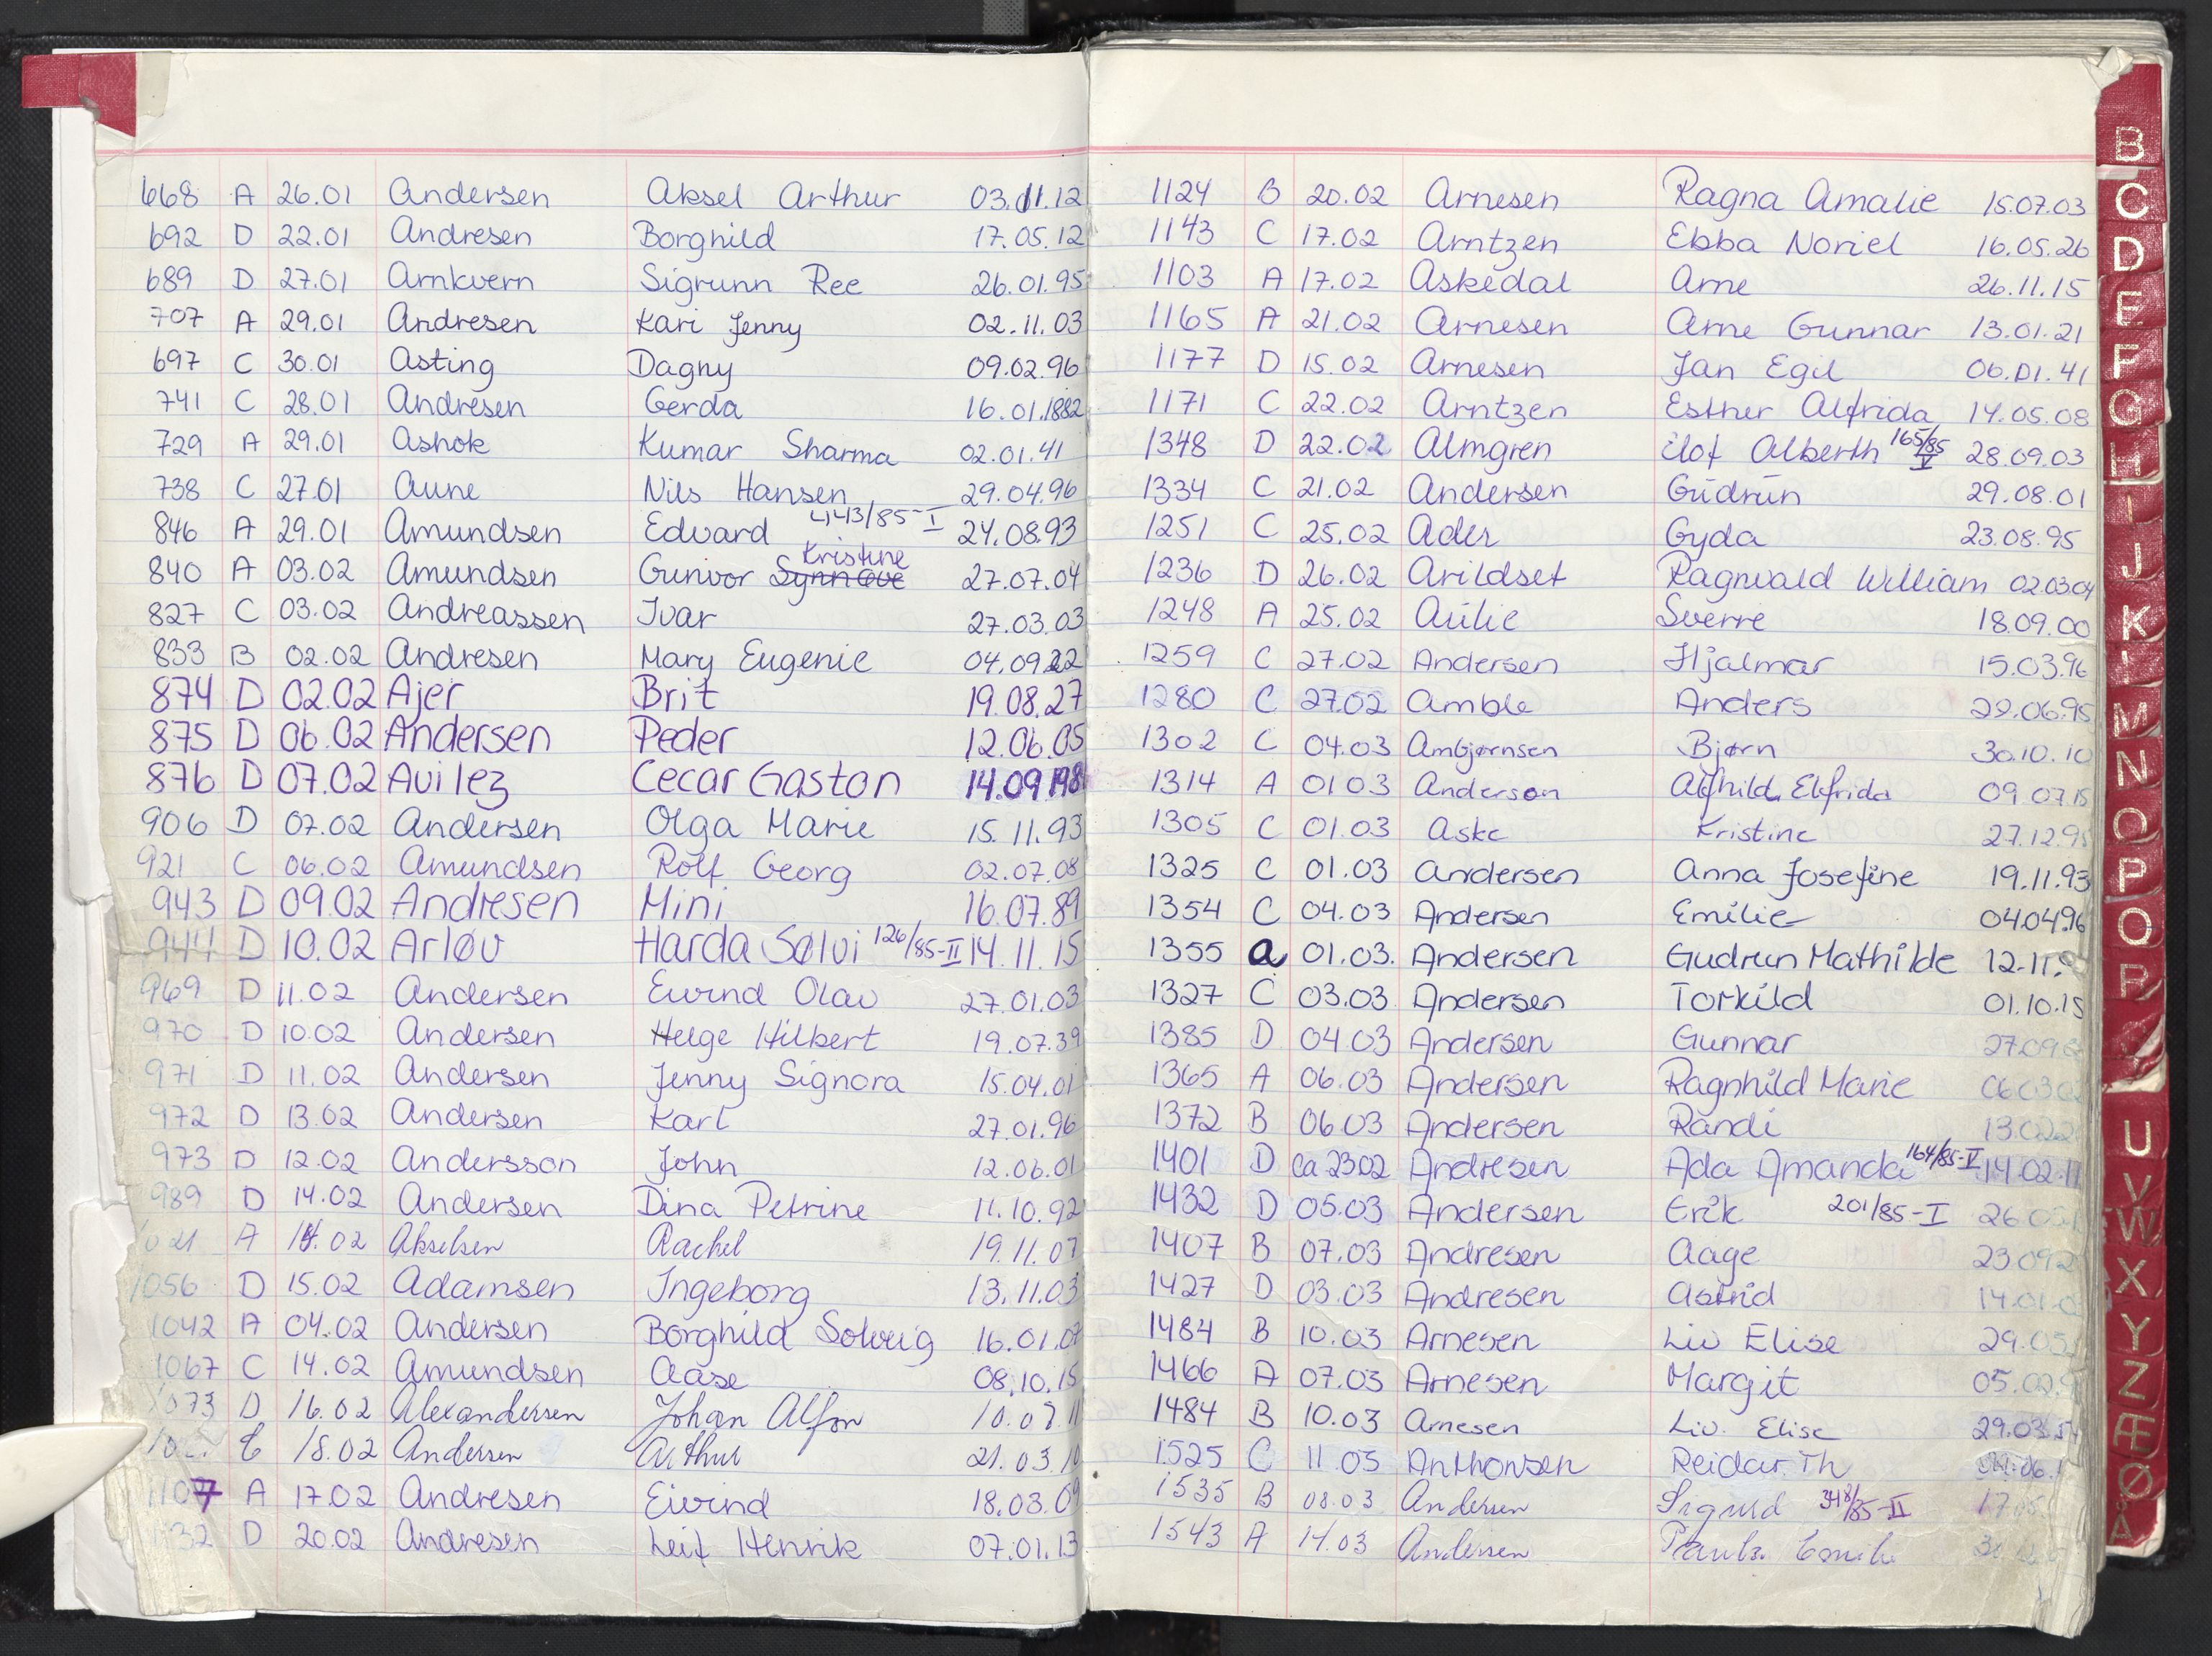 668 A 26.01 Andersen Aksel Arthur 03.11.12
692 D 22.01 Andresen Borghild 17.05.12
689 D 27.01 Arnkvern Sigrunn Ree 26.01.95
707 A 29.01 Andresen Kari Jenny 02.11.03
697 C 30.01 Asting Dagny 09.02.96
741 C 28.01 Andresen Gerda 16.01.1882
729 A 29.01 Ashok Kumar Sharma 02.01.41
738 C 27.01 Aune Nils Hansen 29.04.96
846 A 29.01 Amundsen Edvard 443/85-I 24.08.93
840 A 03.02 Amundsen Gunvor Synnøve Kristine 27.07.04
827 C 03.02 Andreassen Ivar 27.03.03
833 B 02.02 Andresen Mary Eugenie 04.09.22
874 D 02.02 Ajer Brit 19.08.27
875 D 06.02 Andersen Peder 12.06.05
876 D 07.02 Avilez Cecar Gaston 14.09.198
906 D 07.02 Andersen Olga Marie 15.11.93
921 C 06.02 Amundsen Rolf Georg 02.07.08
943 D 09.02 Andresen Mini 16.07.89
944 D 10.02 Arløv Harda Sølvi 126/85-II 14.11.15
969 D 11.02 Andersen Eivind Olav 27.01.03
970 D 10.02 Andersen Helge Hilbert 19.07.39
971 D 11.02 Andersen Jenny Signora 15.04.01
972 D 13.02 Andersen Karl 27.01.96
973 D 12.02 Andersson John 12.06.01
989 D 14.02 Andersen Dina Petrine 11.10.92
1021 A 14.02 Akselsen Rachel 19.11.07
1056 D 15.02 Adamsen Ingeborg 13.11.03
1042 A 04.02 Andersen Borghild Solveig 16.01.07
1067 C 14.02 Amundsen Aase 08.10.15
1073 D 16.02 Alexandersen Johan Alfon 10.07.11
C 18.02 Andersen Arthur 21.03.10
1107 A 17.02 Andresen Eivind 18.03.09
1132 D 20.02 Andresen Leif Henrik 07.01.13
1124 B 20.02 Arnesen Ragna Amalie 15.07.03
1143 C 17.02 Arntzen Ebba Noriel 16.05.26
1103 A 17.02 Askedal Arne 26.11.15
1165 A 21.02 Arnesen Arne Gunnar 13.01.21
1177 D 15.02 Arnesen Jan Egil 06.01.41
1171 C 22.02 Arntzen Esther Alfrida 14.05.08
1348 D 22.02 Almgren Elof Alberth 165/85 V 28.09.03
1334 C 21.02 Andersen Gudrun 29.08.01
1251 C 25.02 Ader Gyda 23.08.95
1236 D 26.02 Arildset Ragnvald William 02.03.04
1248 A 25.02 Aulie Sverre 18.09.00
1259 C 27.02 Andersen Hjalmar 15.03.96
1280 C 27.02 Amble Anders 29.06.95
1302 C 04.03 Ambjørnsen Bjørn 30.10.10
1314 A 01 03 Anderson Alfhild Elfrida 09.07.15
1305 C 01.03 Aske Kristine 27.12.95
1325 C 01.03 Andersen Anna Josefine 19.11.93
1354 C 04.03 Andersen Emilie 04.04.96
1355 a 01.03. Andersen Gudrun Mathilde 12.11.
1327 C 03.03 Andersen Torkild 01.10.15
1385 D 04.03 Andersen Gunnar 27.09
1365 A 06.03 Andersen Ragnhild Marie 06.03.0
1372 B 06.03 Andersen Randi 13.02.2
1401 D ca 23.02 Andresen Ada Amanda 164/85-V 14.02.11
1432 D 05.03 Andersen Erik 201/85-I 26.05
1407 B 07.03 Andresen Aage 23.09.2
1427 D 03.03 Andresen Astrid 14.01.0
1484 B 10.03 Arnesen Liv Elise 29.03
1466 A 07.03 Arnesen Margit 05.02.9
1484 B 10.03 Arnesen Liv. Elise 29.03.54
1525 C 11.03 Anthonsen Reidar Th
1535 B 08.03 Andersen Sigurd 348/85-II 17.05
1543 A 14.03 Andersen Emilie
B
C
D
E
F
G
H
I
J
K
L
M
N
O
P
Q
R
U
V
W
X
Y
Z
Æ
Ø
Å